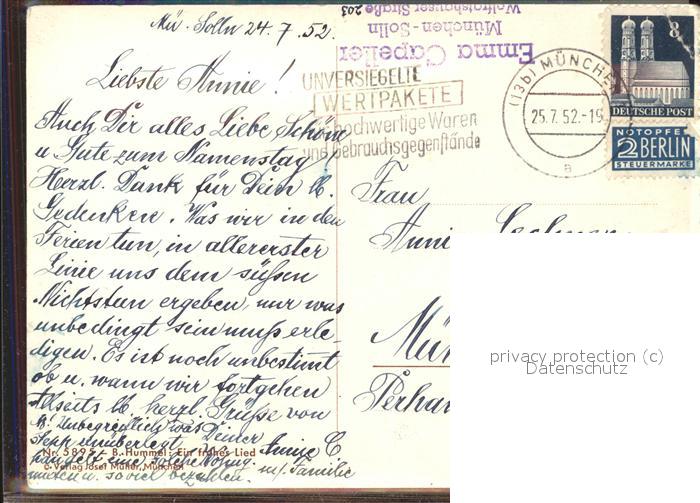 Mü-Solln 24.7.52.
Emma Capeller
München-Solln
Wolfratshauser Straße 203
Liebste Annie!
UNVERSIEGELTE
WERTPAKETE
hochwertige Waren
und Gebrauchsgegenstände
(13b) MÜNCHEN
25.7.52.-19
a
8
DEUTSCHE POST
NOTOPFER
2 BERLIN
STEUERMARKE
Auch Dir alles Liebe Schöne
u Gute zum Namenstag!
Herzl. Dank für Dein lb.
Gedenken. Was wir in den
Ferien tun, in allererster
Linie uns dem süßen
Nichtstun ergeben, nur was
unbedingt sein muß erle-
digen. Es ist noch unbestimmt
ob u. wann wir fortgehen
Allseits lb. herzl. Grüße von
Annie C.
m/ Familie
Unbegreiflich was Deiner
Sepp unüberlegt
handelt eine solche
u. soviel bezahlen.
Frau
Annie
Mün
Nr. 5895 B. Hummel: Ein frohes Lied
© Verlag Josef Müller, München
privacy protection (c)
Datenschutz